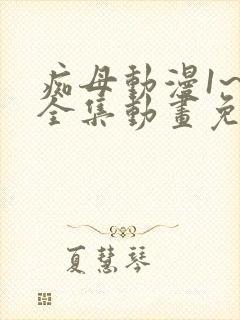 痴母動漫1~
全集動畫免
夏慧琴